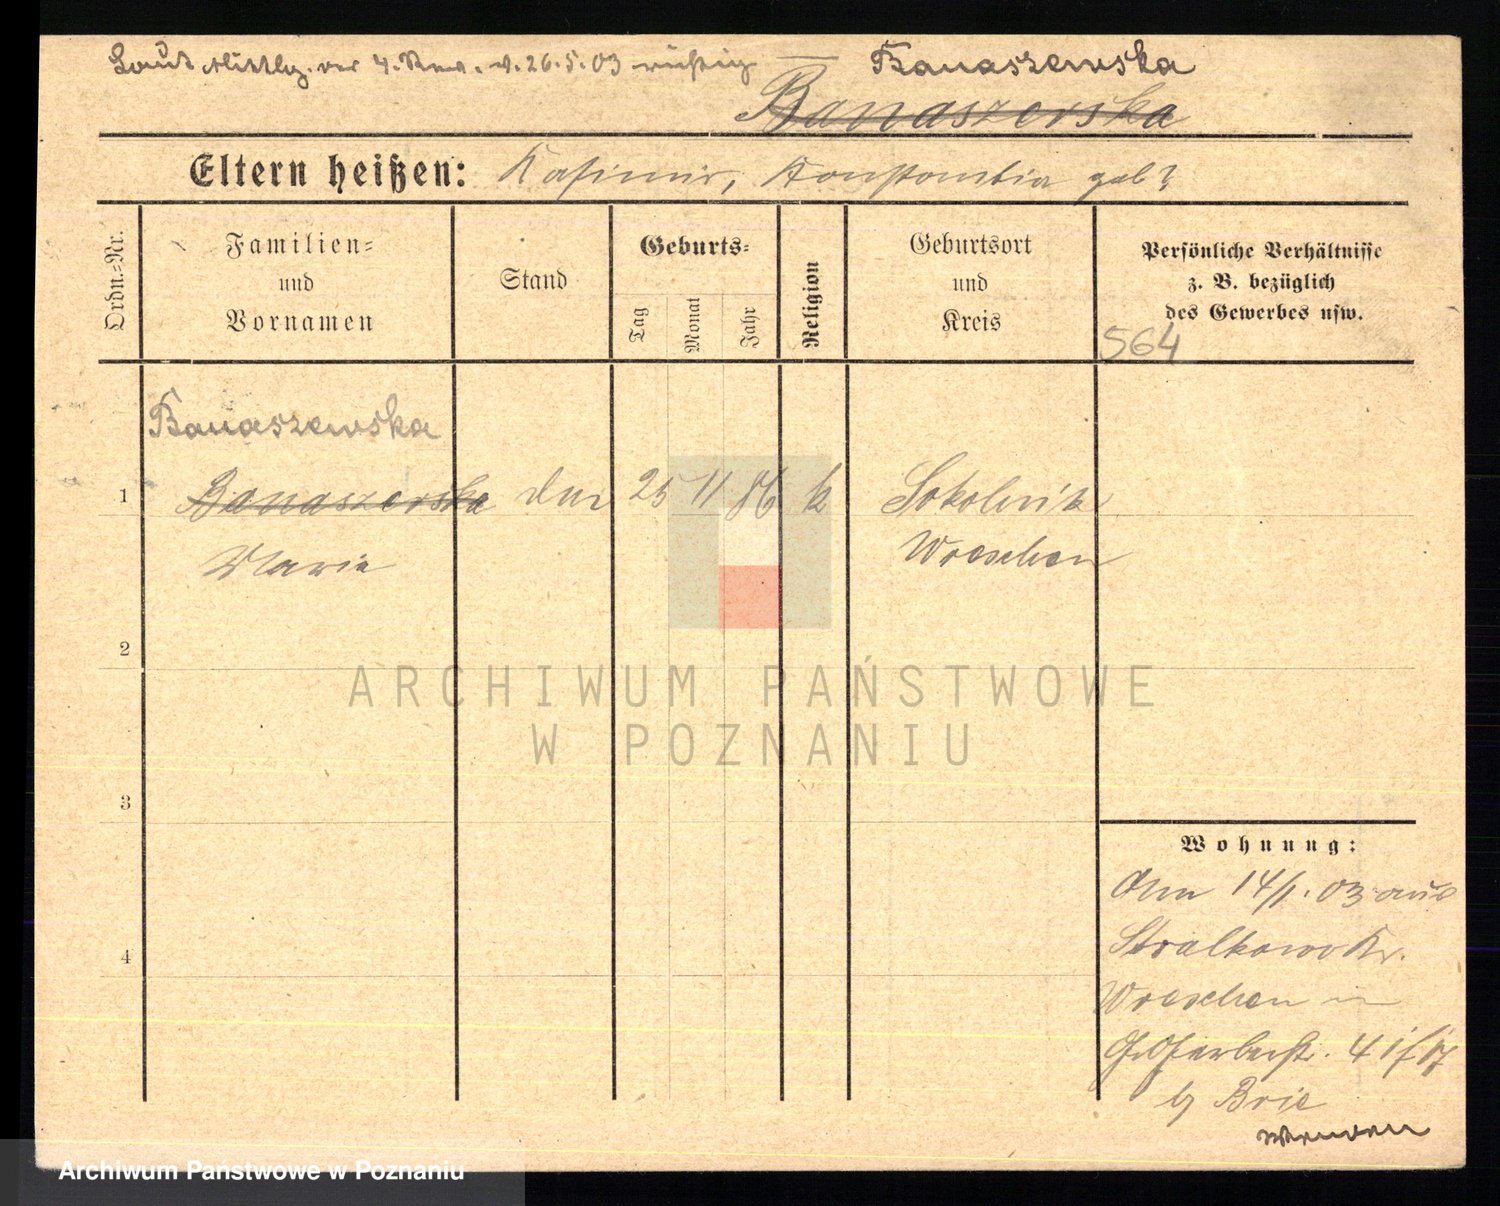 Laut Mittlg. der 4. Rev. v. 26.5.03 richtig — Banaszewska
Banaszerska
Eltern heißen: Kasimir, Konstantia geb?
Ordn.=Nr.
Familien=
und
Vornamen
Stand
Geburts=
Tag
Monat
Jahr
Religion
Geburtsort
und
Kreis
Persönliche Verhältnisse
z. B. bezüglich
des Gewerbes usw.
564
Banaszewska
1 Banaszerska 25 11 86 k
Marie
Wreschen
2
3
4
Wohnung:
14/1.03 aus
Stralkowo Kr.
Wreschen in
41
b/ Brie
wenden
ARCHIWUM PAŃSTWOWE
W POZNANIU
Archiwum Panstwowe w Poznaniu